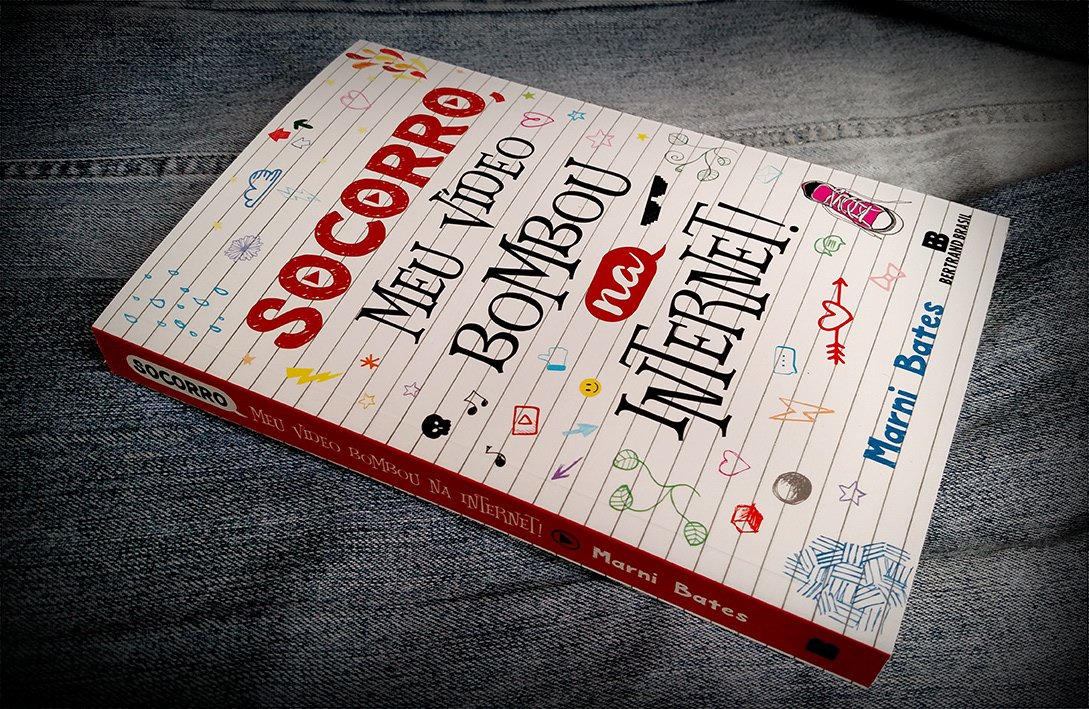 SOCORRO,
MEU VÍDEO
BOMBOU
na
INTERNET!
Marni Bates
BB
BERTRAND BRASIL
SOCORRO
MEU VÍDEO BOMBOU NA INTERNET!
Marni Bates
B